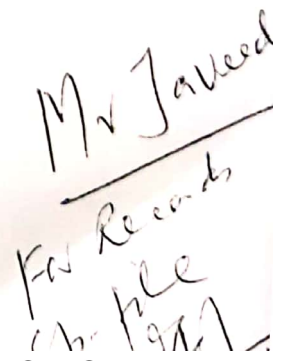 Mr Javeed
For Records
file